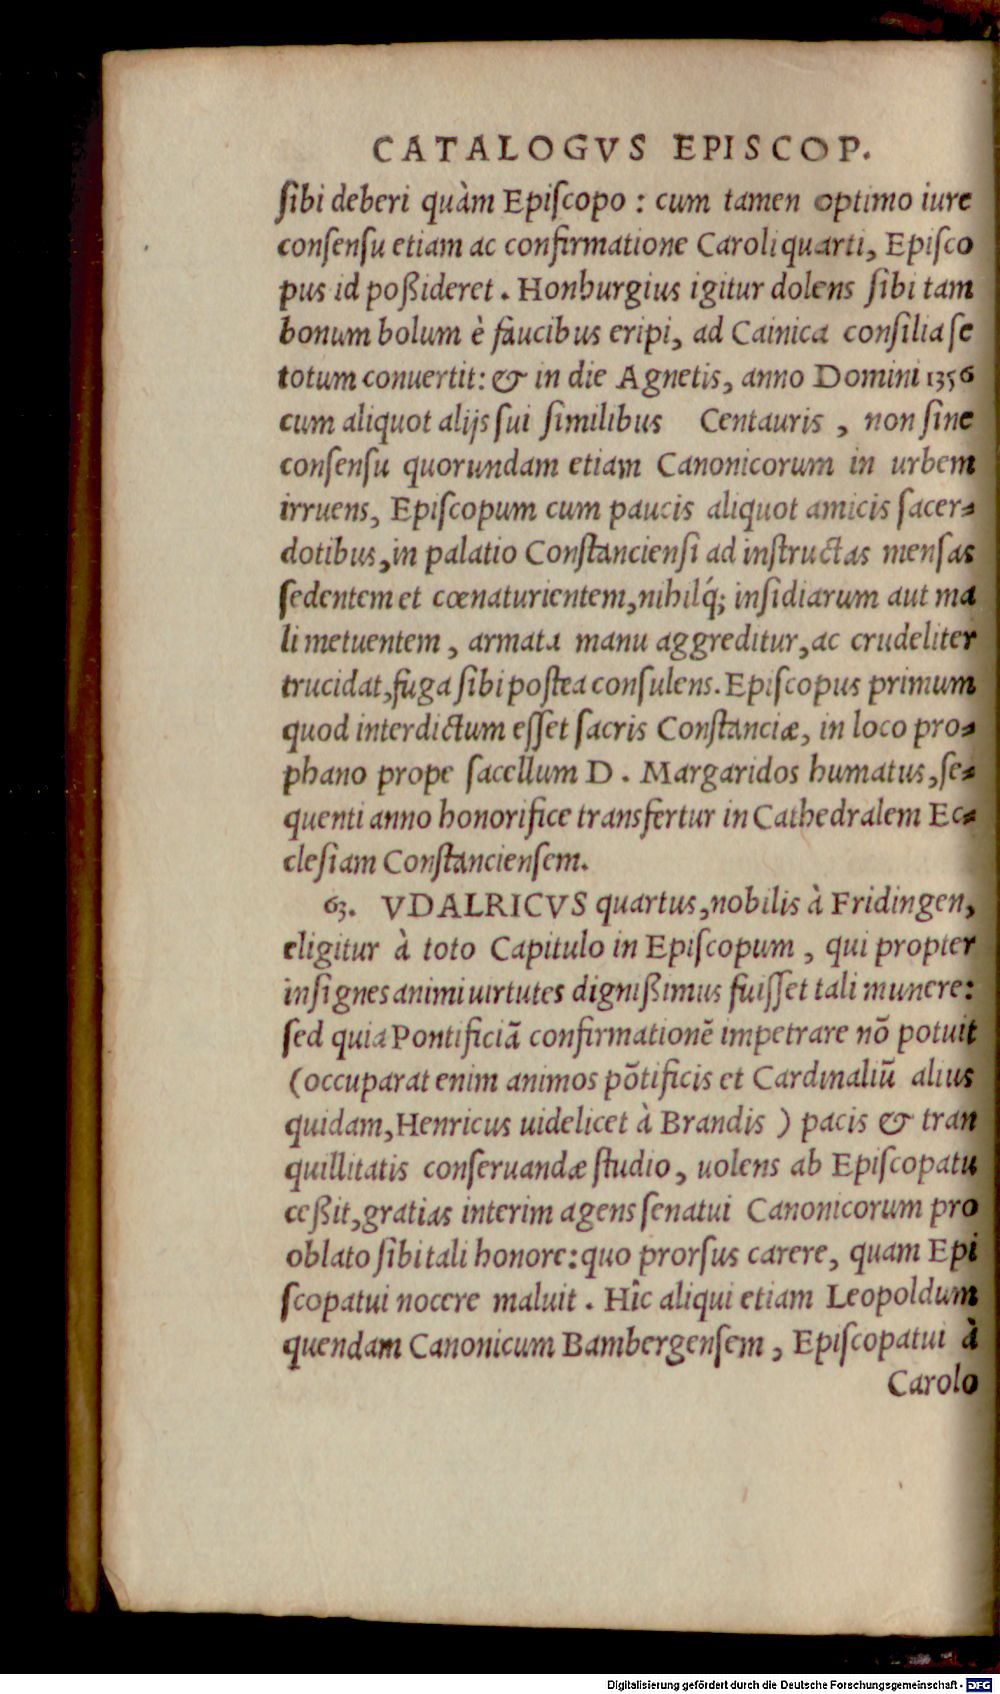 CATALOGVS EPISCOP.
ſibi deberi quàm Epiſcopo : cum tamen optimo iure
conſenſu etiam ac confirmatione Caroli quarti, Epiſco
pus id poßideret. Honburgius igitur dolens ſibi tam
bonum bolum è faucibus eripi, ad Cainica conſilia ſe
totum conuertit: & in die Agnetis, anno Domini 1356
cum aliquot alijs ſui ſimilibus Centauris, non ſine
conſenſu quorundam etiam Canonicorum in urbem
irruens, Epiſcopum cum paucis aliquot amicis ſacer-
dotibus, in palatio Conſtancienſi ad inſtructas menſas
ſedentem et cœnaturientem, nihilq́; inſidiarum aut ma
li metuentem, armata manu aggreditur, ac crudeliter
trucidat, fuga ſibi poſtea conſulens. Epiſcopus primum
quod interdictum eſſet ſacris Conſtanciæ, in loco pro-
phano prope ſacellum D. Margaridos humatus, ſe-
quenti anno honorifice transfertur in Cathedralem Ec-
cleſiam Conſtancienſem.
63. VDALRICVS quartus, nobilis à Fridingen,
eligitur à toto Capitulo in Epiſcopum, qui propter
inſignes animi uirtutes dignißimus fuiſſet tali munere:
ſed quia Pontificiã confirmationẽ impetrare nõ potuit
(occuparat enim animos põtificis et Cardinaliũ alius
quidam, Henricus uidelicet à Brandis) pacis & tran
quillitatis conſeruandæ ſtudio, uolens ab Epiſcopatu
ceßit, gratias interim agens ſenatui Canonicorum pro
oblato ſibi tali honore: quo prorſus carere, quam Epi
ſcopatui nocere maluit. Hîc aliqui etiam Leopoldum
quendam Canonicum Bambergenſem, Epiſcopatui à
Carolo
Digitalisierung gefördert durch die Deutsche Forschungsgemeinschaft - DFG